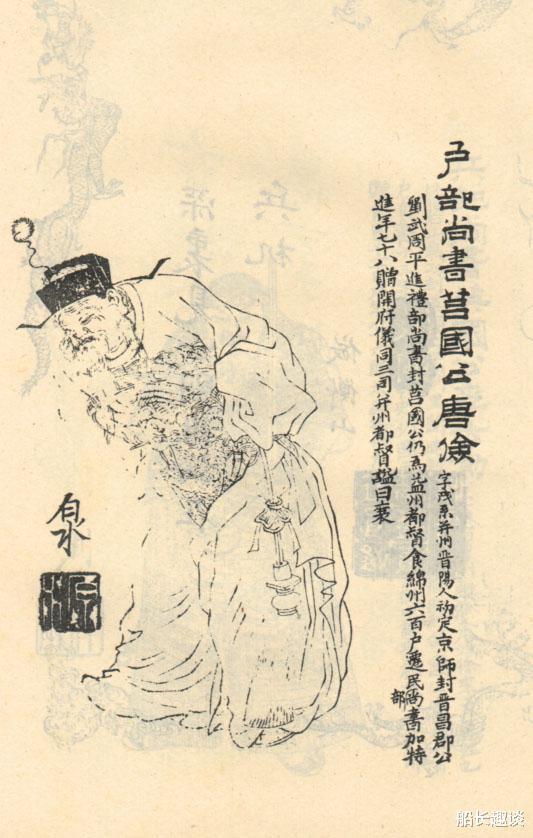 戶部尚書莒國公唐儉
字茂系并州晋陽人初定京師封晋昌郡公
劉武周平進禮部尚書封莒國公仍為益州都督食綿州六百戶遷民部尚書加特
進年七十八贈開府儀同三司并州都督謚曰襄
船长趣谈